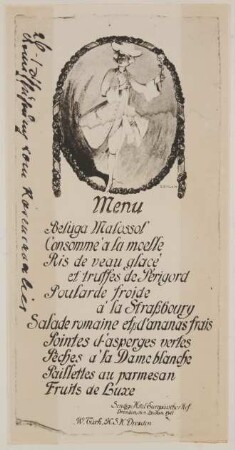 Menu
Beluga Malossol
Consommé à la moelle
Ris de veau glacé
et truffes de Périgord
Poularde froide
à la Straßbourg
Salade romaine et d'ananas frais
Pointes d'asperges vertes
Pêches à la Dame blanche
Paillettes au parmesan
Fruits de Luxe
Hotel Europäischer Hof
Dresden